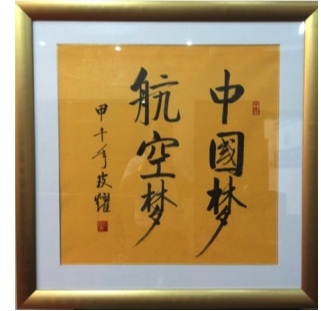 中國梦
航空梦
甲午年耀